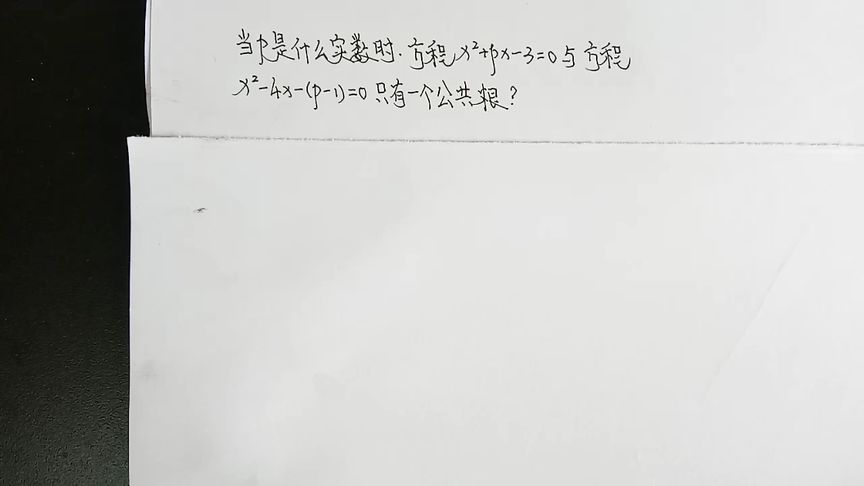 当p是什么实数时.方程x²+px-3=0与方程
x²-4x-(p-1)=0只有一个公共根?